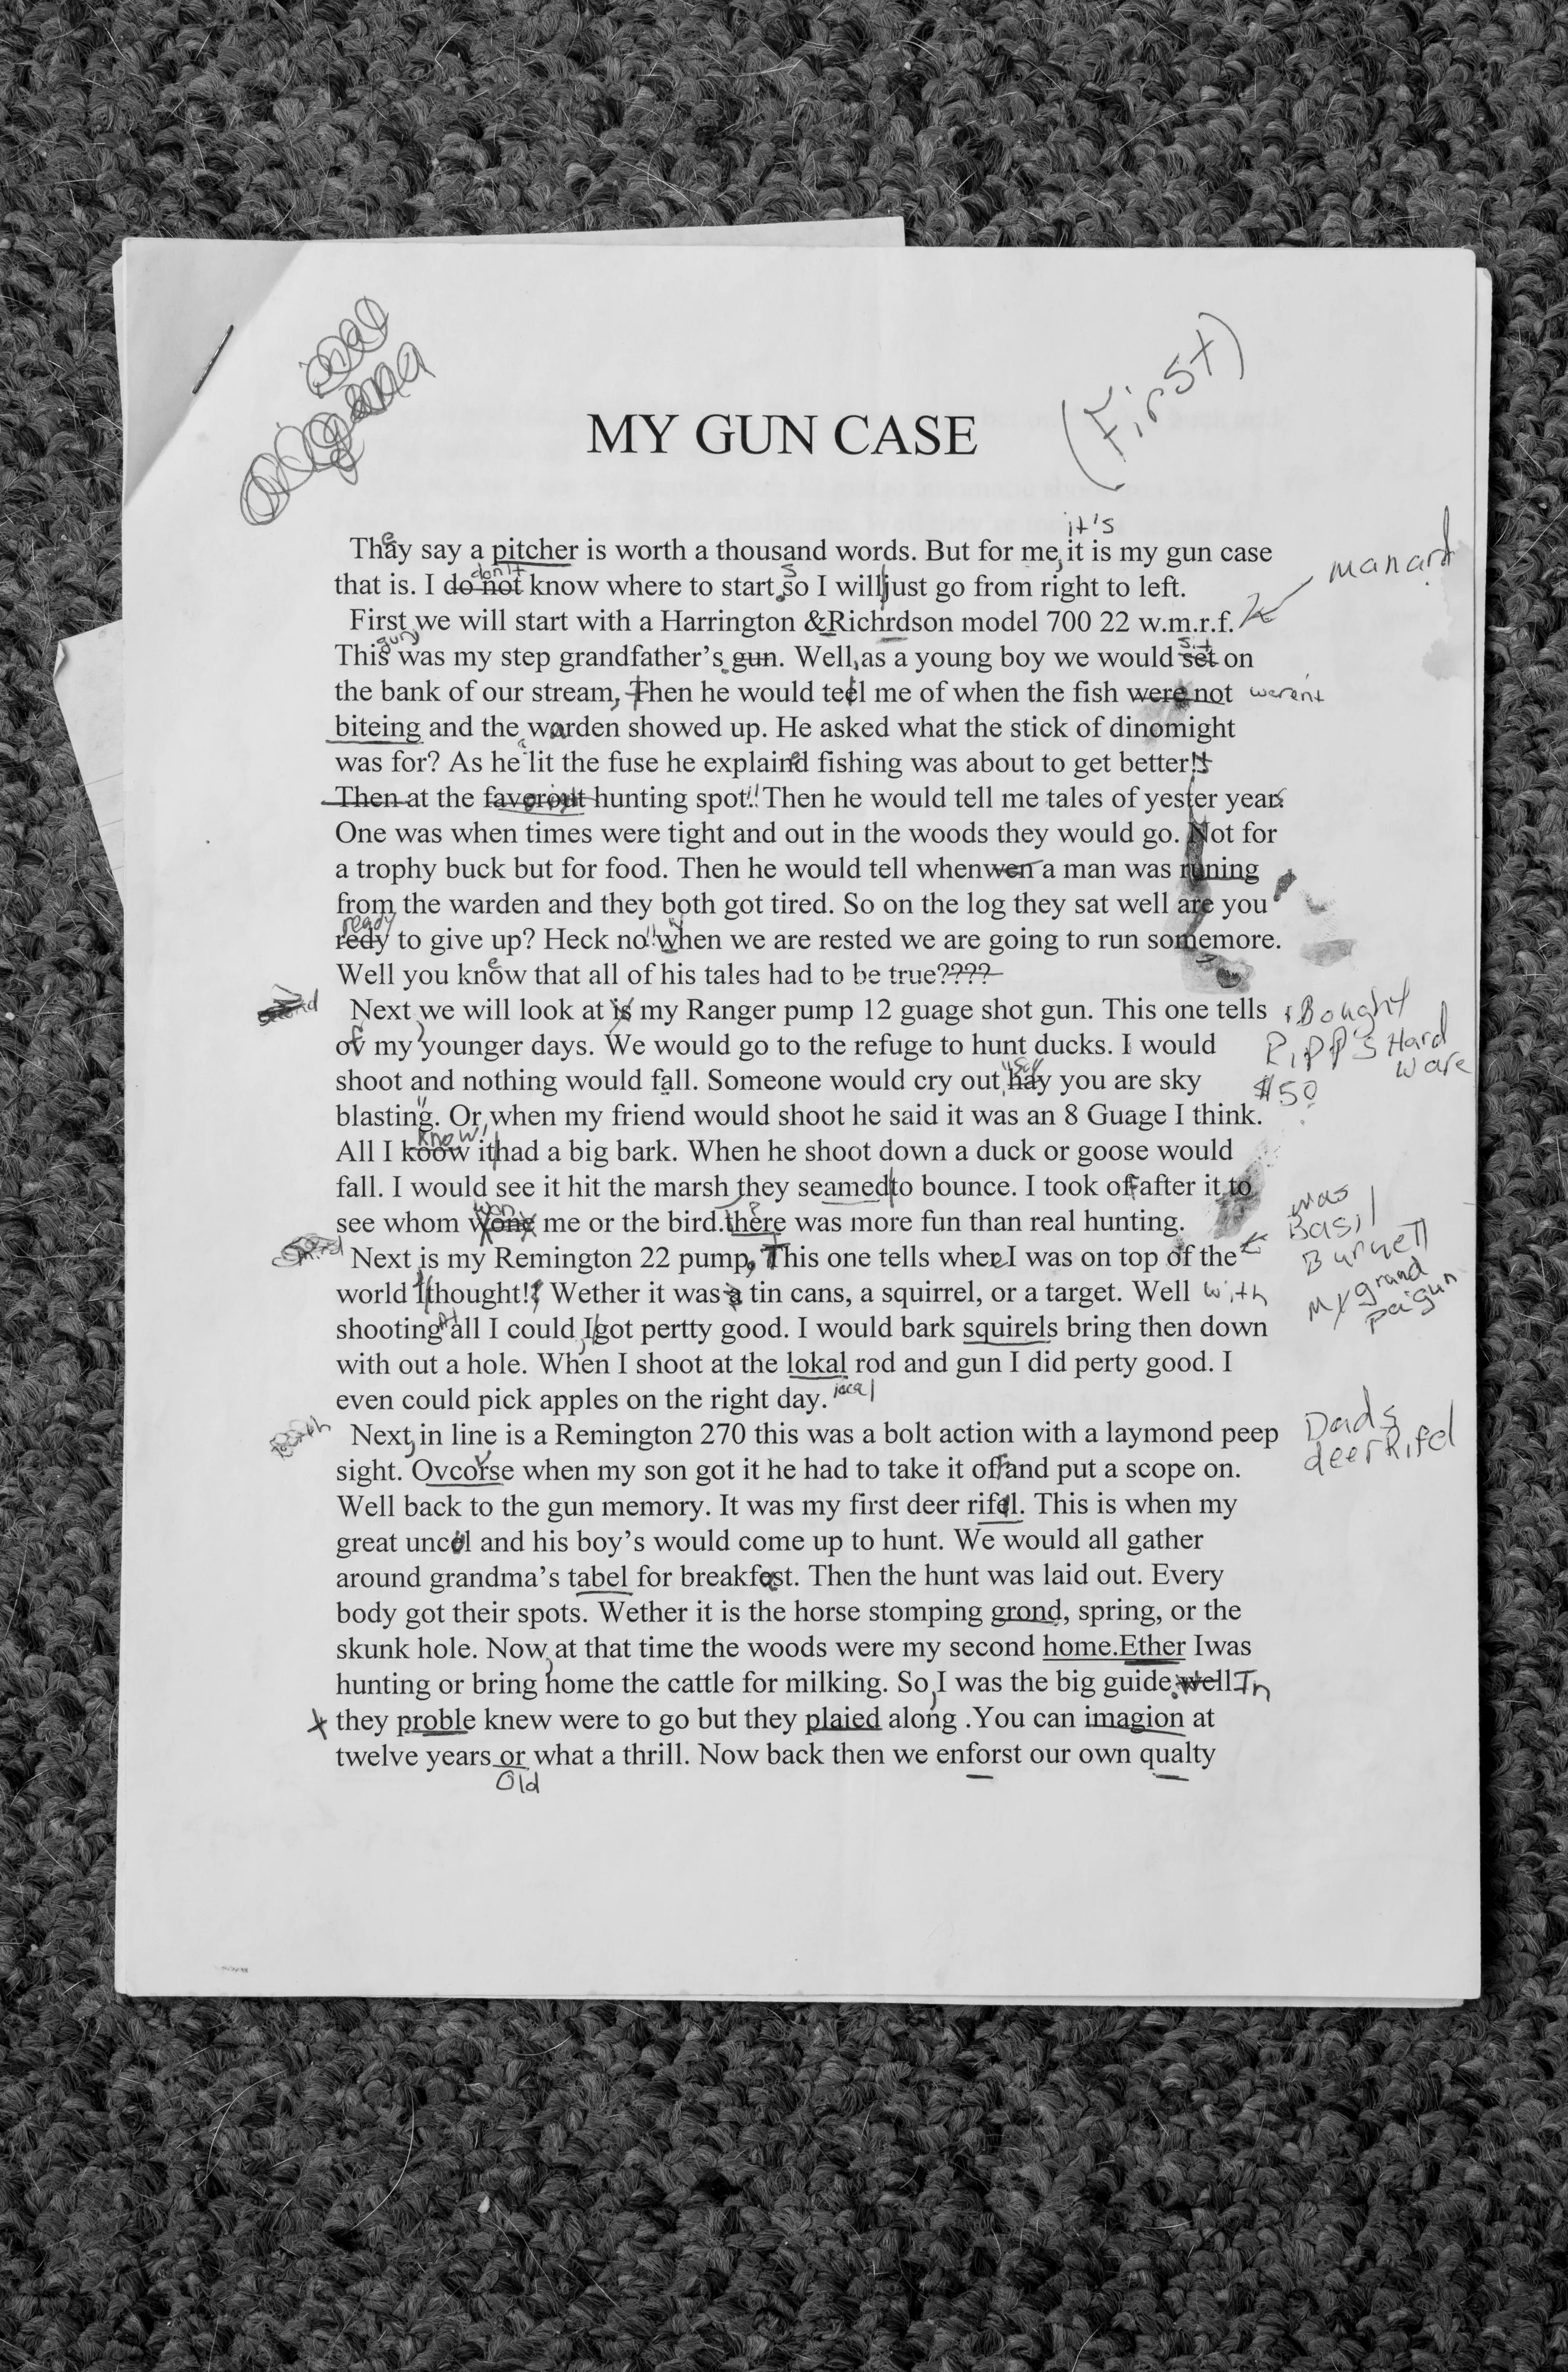 (First)
MY GUN CASE
it's
Thay say a pitcher is worth a thousand words. But for me, it is my gun case
manard
don't s
that is. I do not know where to start.so I will|just go from right to left.
First, we will start with a Harrington &Richrdson model 700 22 w.m.r.f.
gun sit
This was my step grandfather's gun. Well, as a young boy we would set on
the bank of our stream, Then he would teel me of when the fish were not werent
biteing and the warden showed up. He asked what the stick of dinomight
a
was for? As he lit the fuse he explained fishing was about to get better!!
Then at the favorout hunting spot!! Then he would tell me tales of yester years
One was when times were tight and out in the woods they would go. Not for
a trophy buck but for food. Then he would tell whenwen a man was runing
from the warden and they both got tired. So on the log they sat well are you
ready
redy to give up? Heck no!! "when we are rested we are going to run somemore.
Well you know that all of his tales had to be true????
Next, we will look at is my Ranger pump 12 guage shot gun. This one tells Bought
of my younger days. We would go to the refuge to hunt ducks. I would Ripp's Hard
ware
shoot and nothing would fall. Someone would cry out, "hay you are sky $50
blasting". Or, when my friend would shoot he said it was an 8 Guage I think.
know,
All I koow it|had a big bark. When he shoot down a duck or goose would
fall. I would see it hit the marsh they seamed|to bounce. I took off after it to
was
won
see whom wone me or the bird.there was more fun than real hunting.
Basil
Burnett
Next, is my Remington 22 pump, This one tells when I was on top of the
my grand
pa gun
world I|thought!! Wether it was a tin cans, a squirrel, or a target. Well with
shooting all I could, I|got pertty good. I would bark squirels bring then down
with out a hole. When I shoot at the lokal rod and gun I did perty good. I
even could pick apples on the right day. local
Next, in line is a Remington 270 this was a bolt action with a laymond peep
Dads
deer Rifel
sight. Ovcorse when my son got it he had to take it off and put a scope on.
Well back to the gun memory. It was my first deer rifel. This is when my
great uncel and his boy's would come up to hunt. We would all gather
around grandma's tabel for breakfast. Then the hunt was laid out. Every
body got their spots. Wether it is the horse stomping grond, spring, or the
skunk hole. Now, at that time the woods were my second home.Ether Iwas
hunting or bring home the cattle for milking. So, I was the big guide.well In
x they proble knew were to go but they plaied along .You can imagion at
twelve years or what a thrill. Now back then we enforst our own qualty
Old